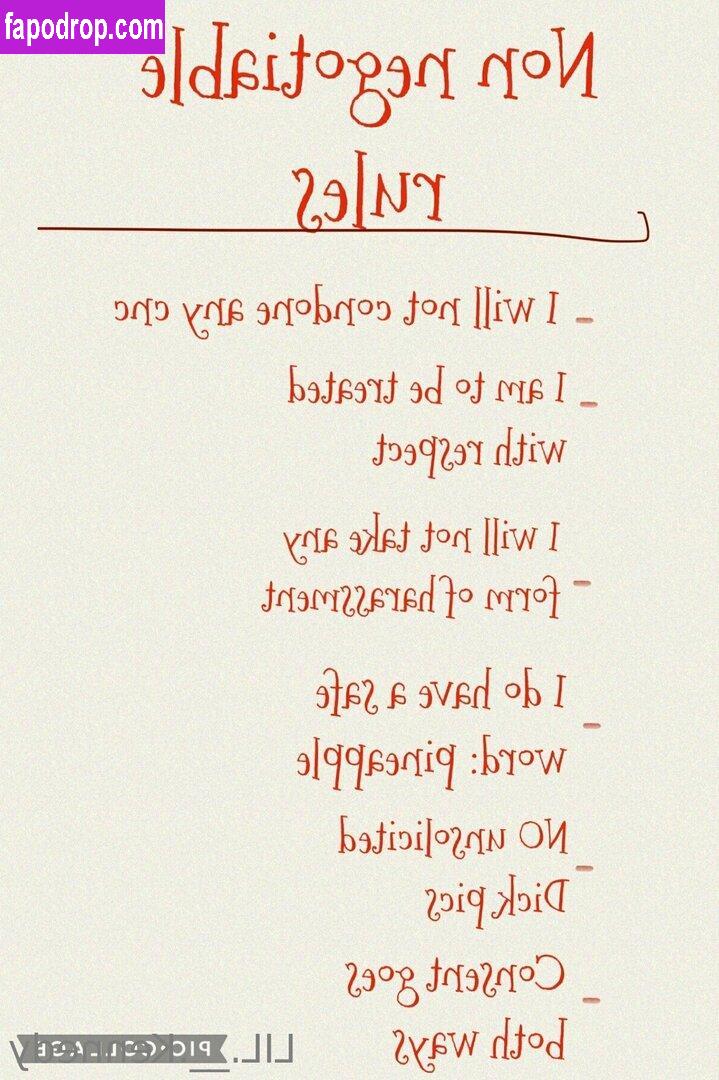 fapodrop.com
Non negotiable
rules
- I will not condone any cnc
- I am to be treated
with respect
I will not take any
- form of harassment
I do have a safe
- word: pineapple
NO unsolicited
- Dick pics
Consent goes
- both ways
PIC•COLLAGE
LIL._.Kennedy